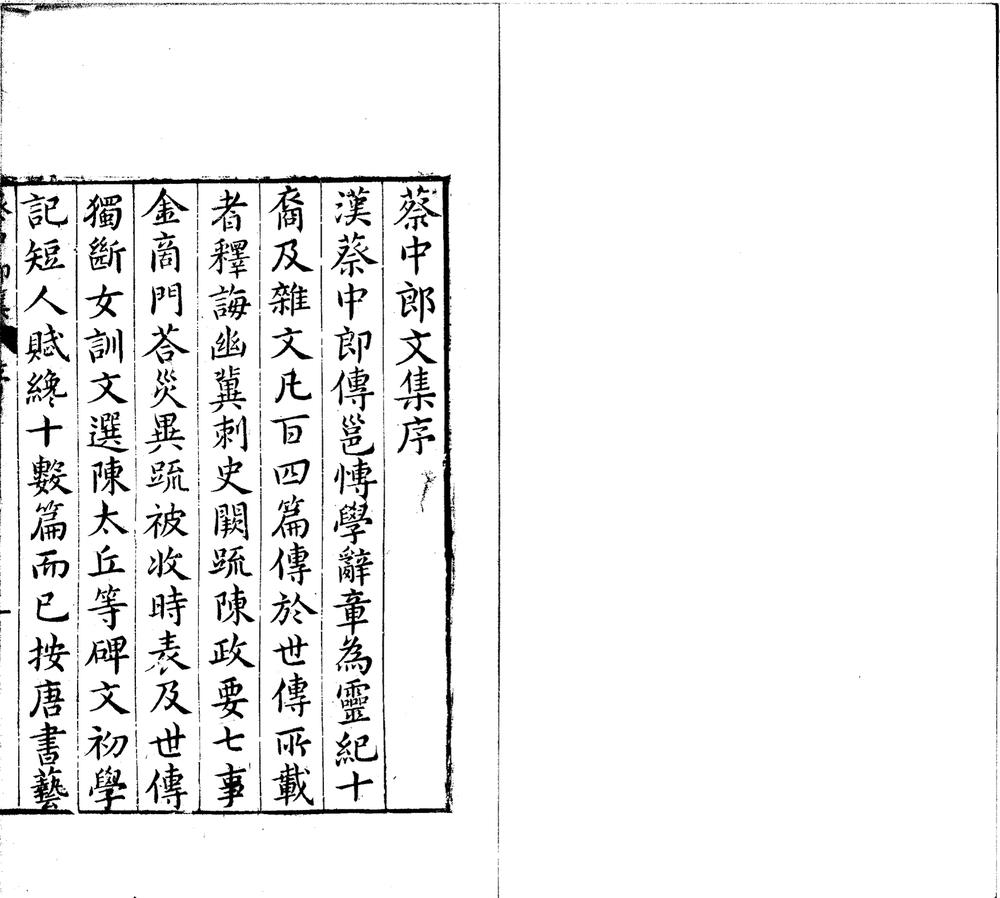 蔡中郎文集序
漢蔡中郎傳邕愽學辭章為靈紀十
裔及雜文凡百四篇傳於世傳所載
者釋誨幽冀刺史闕䟽陳政要七事
金商門荅災異䟽被收時表及世傳
獨斷女訓文選陳太丘等碑文初學
記短人賦纔十數篇而已按唐書藝